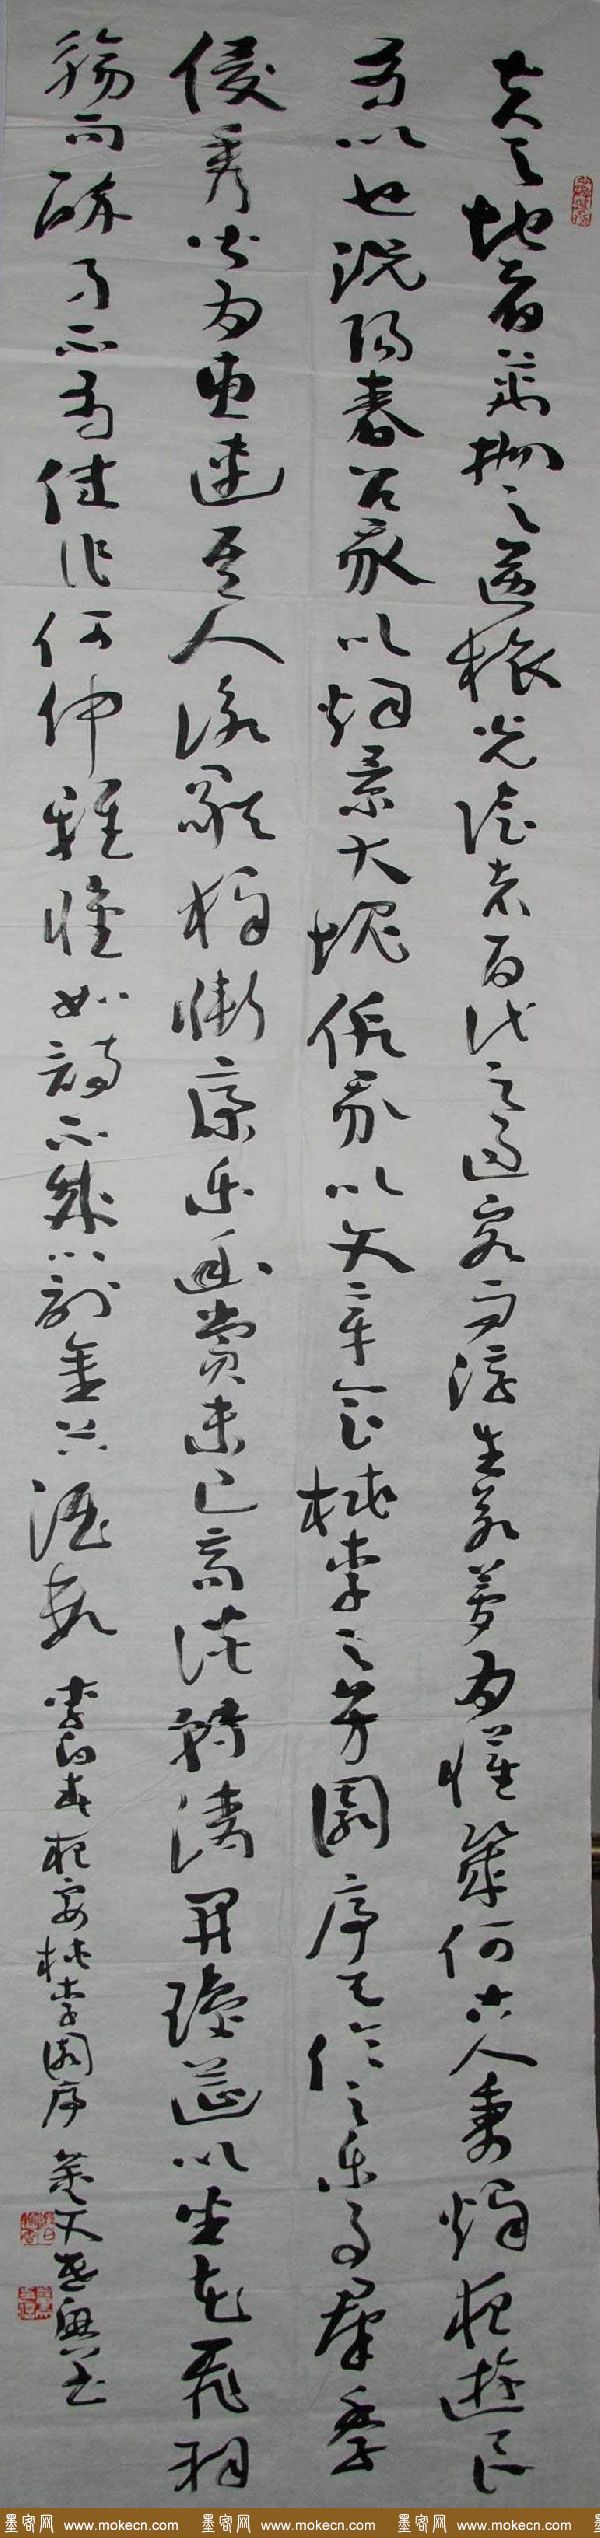 夫天地者萬物之逆旅光陰者百代之過客而浮生若夢為懽幾何古人秉燭夜遊良
有以也況陽春召我以煙景大塊假我以文章會桃李之芳園序天倫之樂事群季
俊秀皆為惠連吾人詠歌獨慚康樂幽賞未已高談轉清開瓊筵以坐花飛羽
觴而醉月不有佳作何伸雅懷如詩不成罰金谷酒數 李白春夜宴桃李園序 書
墨客网 www.mokecn.com 墨客网 www.mokecn.com 墨客网 www.mokecn.com